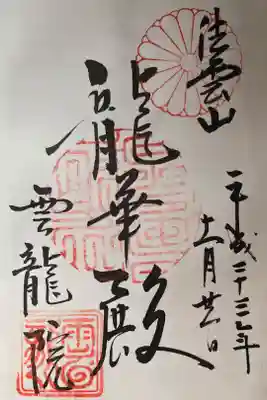 雲山
平成二十三年
十一月廿日
龍華殿
雲龍院